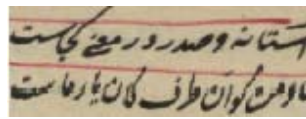 آستانه و صدر در معنی کجاست
ما و من کو آن طرف کان یار ماست